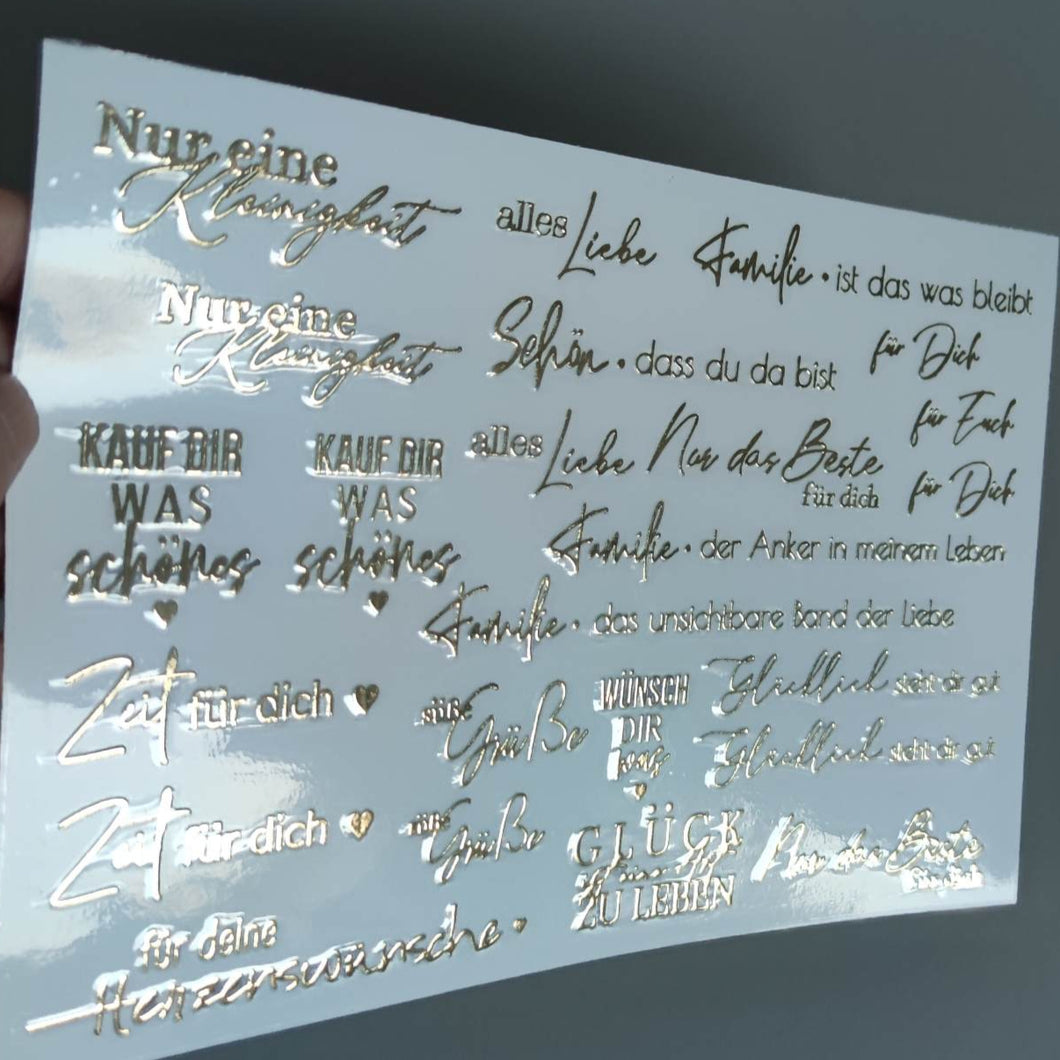 Nur eine
Kleinigkeit
alles Liebe
Familie • ist das was bleibt
Nur eine
Kleinigkeit
Schön • dass du da bist
für Dich
für Euch
für Dich
KAUF DIR
WAS
schönes
KAUF DIR
WAS
schönes
alles Liebe
Nur das Beste
für dich
Familie • der Anker in meinem Leben
Familie • das unsichtbare Band der Liebe
Zeit für dich
süße Grüße
WÜNSCH
DIR
was
Glücklich steht dir gut
Glücklich steht dir gut
Zeit für dich
süße Grüße
GLÜCK
ZU LEBEN
Nur das Beste
für dich
für deine
Herzenswünsche